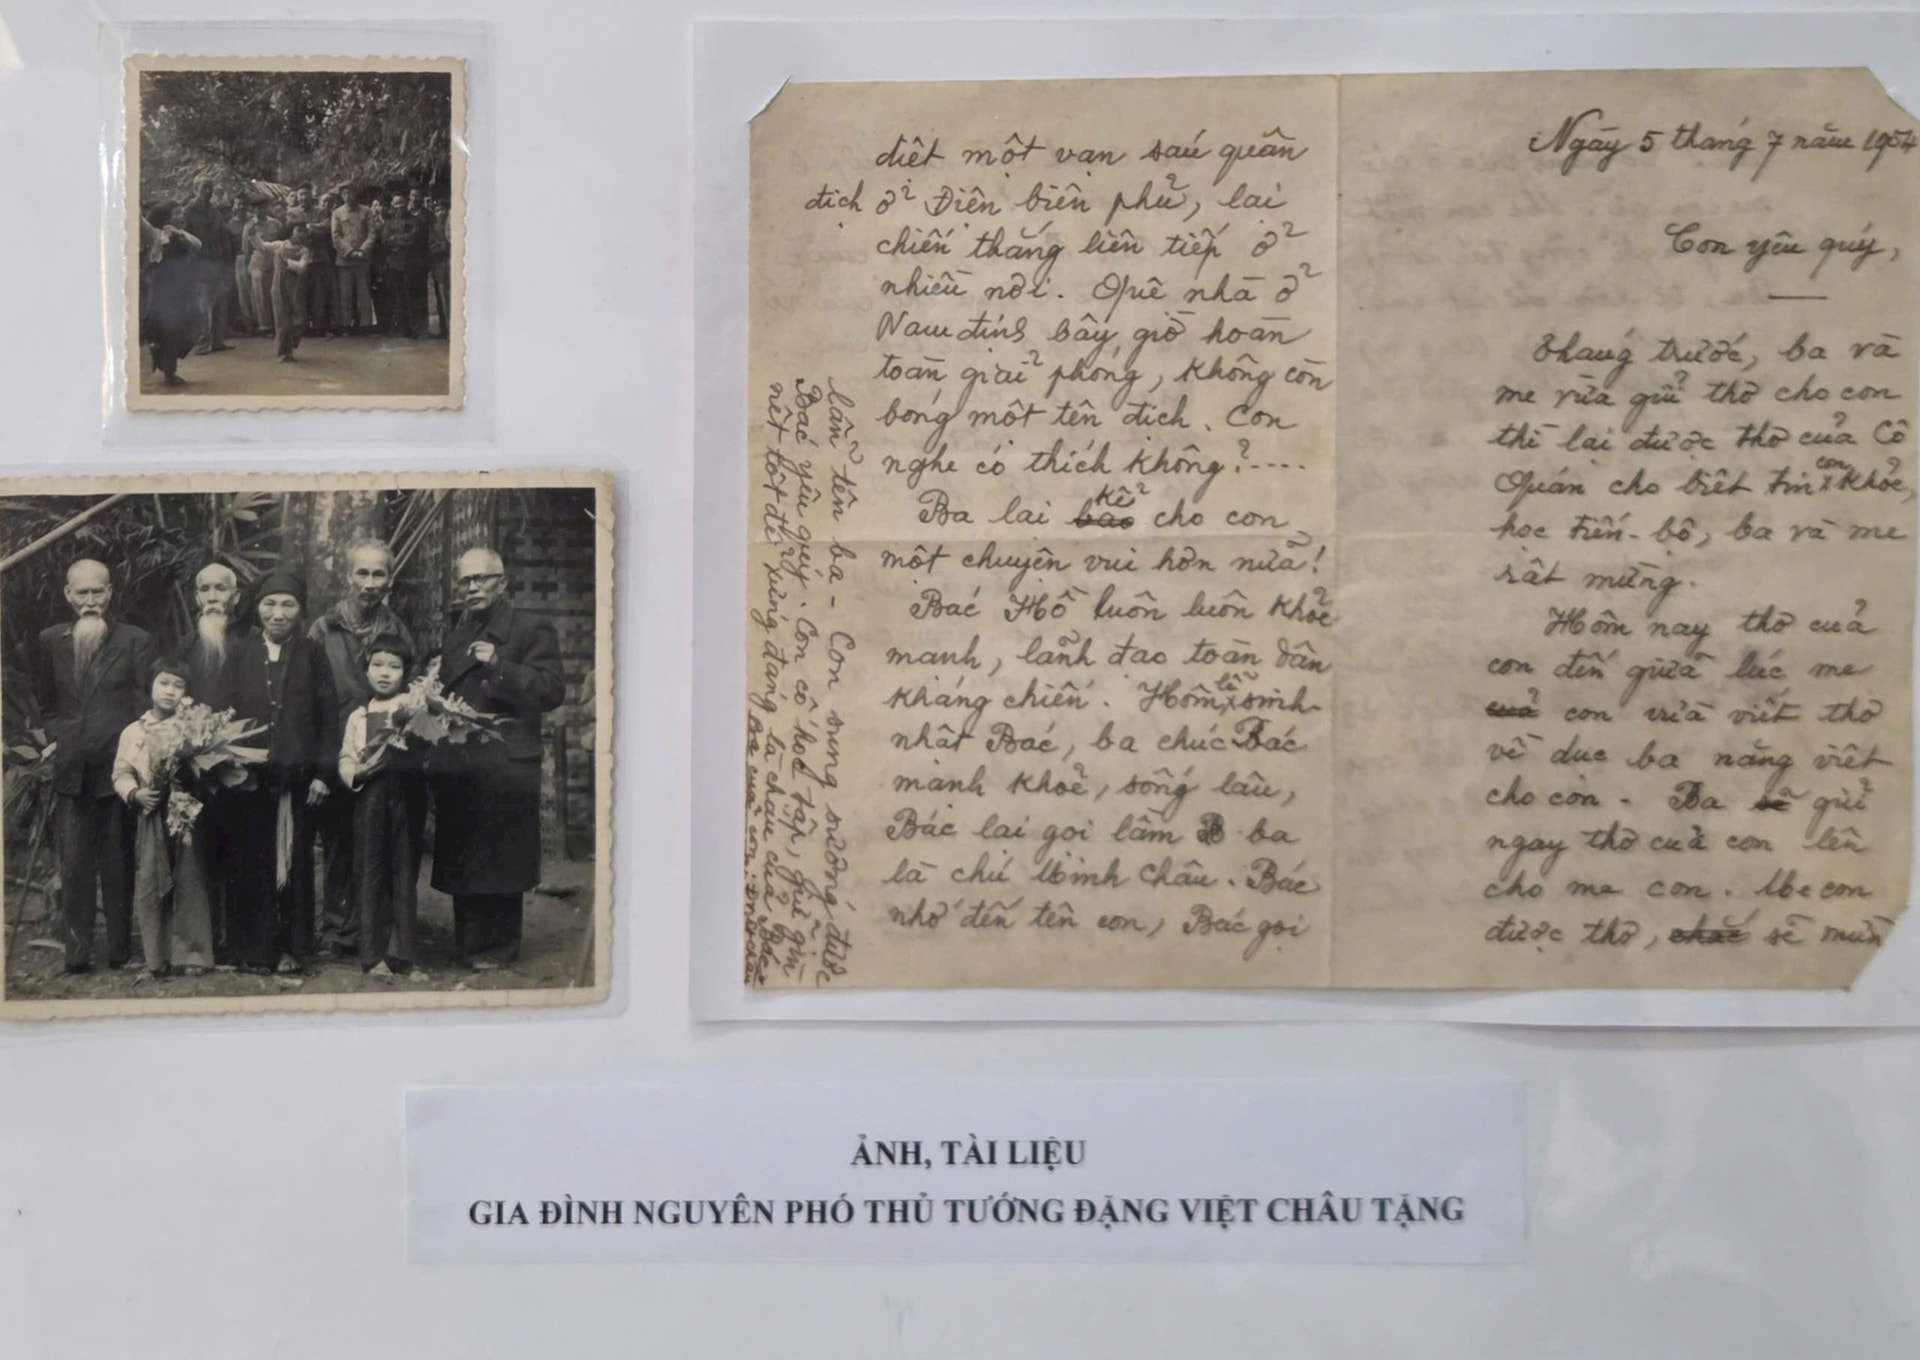 Ngày 5 tháng 7 năm 1954
Con yêu quý,
Tháng trước, ba và
mẹ vừa gửi thơ cho con
thì lại được thơ của Cô
Quán cho biết tin con khỏe,
học tiến-bộ, ba và mẹ
rất mừng.
Hôm nay thơ của
con đến giữa lúc mẹ
của con vừa viết thơ
về dục ba năng viết
cho con. Ba sẽ gửi
ngay thơ của con lên
cho mẹ con. Mẹ con
được thơ, chắc sẽ mừn
diệt một vạn sáu quân
địch ở Điện biên phủ, lại
chiến thắng liên tiếp ở
nhiều nơi. Quê nhà ở
Nam định bây giờ hoàn
toàn giải phóng, không còn
bóng một tên địch. Con
nghe có thích không?....
Ba lại bảo kể cho con
một chuyện vui hơn nữa!
Bác Hồ luôn luôn khỏe
mạnh, lãnh đạo toàn dân
kháng chiến. Hôm lễ sinh-
nhật Bác, ba chúc Bác
mạnh khoẻ, sống lâu,
Bác lại gọi lầm ba
là chú Minh Châu. Bác
nhớ đến tên con, Bác gọi
lẫn tên ba - Con sung sướng được
Bác yêu quý. Con cố học tập, giữ gìn
nết tốt để xứng đáng là cháu của Bác
Ba của con:
ẢNH, TÀI LIỆU
GIA ĐÌNH NGUYÊN PHÓ THỦ TƯỚNG ĐẶNG VIỆT CHÂU TẶNG